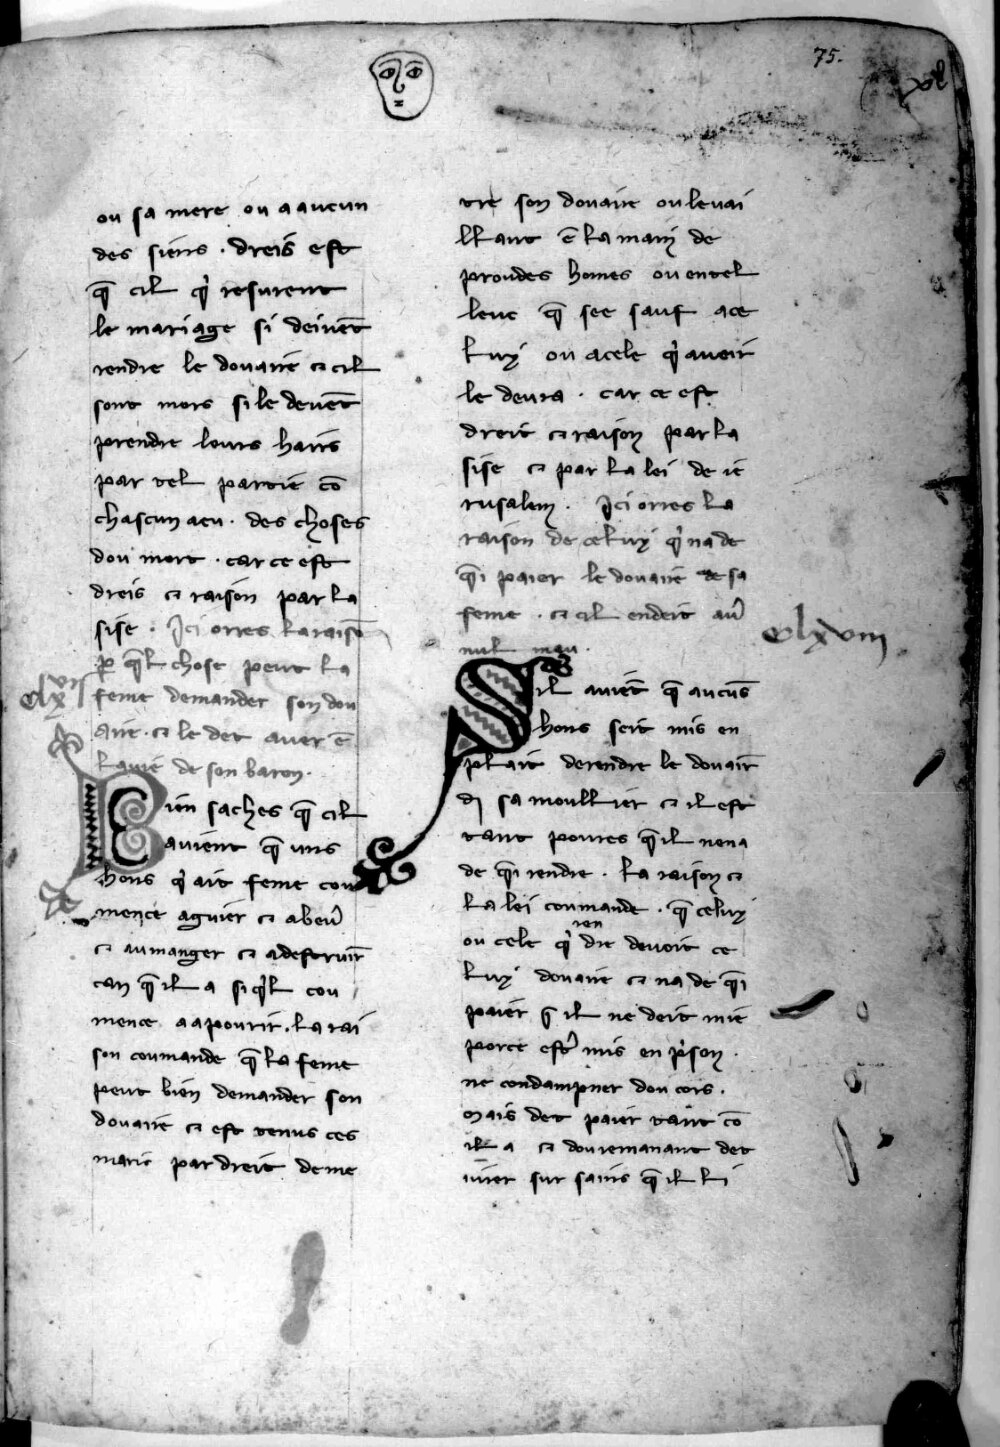 75.
xl
ou sa mere ou a aucun
des siens . dreis est
q̄ cil q̇ resurent
le mariage si deivēt
rendre le douaire ⁊ cil
sont mors si le devēt
prendre lours hairs
par tel partie cō
chascun a eu . des choses
dou mort . car ce est
dreis ⁊ raison par la
sise . Ici orres la raisō
p̱ q̄l chose peut la
feme demander son dou
aire . ⁊ le det aver ē
la vie de son baron .
Bien saches q̄ cil
avient q̄ uns
hons q̇ ait feme cou
mence a guier ⁊ a bevͬ
⁊ au manger ⁊ a destruir̄
can q̄ il a si q̇l cou
mence a apourir . la rai
son coumande q̄ la feme
peut bien demander son
douaire ⁊ est tenus ces
maris par dreit de me
tre son douaire ou le vai
llant ē la main de
proudes homes ou en tel
leuc q̄ see sauf a ce
luy ou a cele q̇ aveir
le devra . car ce est
dreit ⁊ raison par la
sise ⁊ par la lei de ie
rusalem . Ici orres la
raison de celuy q̇ na de
q̄i paier le douaire de sa
feme . ⁊ cil en deit avͬ
nul mau .
clxviii
Sil avient q̄ aucūs
hons seit mis en
plait de rendre le douair̄
d̄ sa moullier ⁊ il est
tant poures q̄ il nen a
de q̄i rendre . la raison ⁊
la lei coumande . q̄ celuy
ou cele q̇ rien die devoit ce
luy douaire ⁊ na de q̄i
paier q̄ il ne deit mie
por ce estͬ mis en p̓son .
ne condampner dou cors .
mais det paier tant cō
il a ⁊ dou remanant det
iurer sur sains q̄ il li